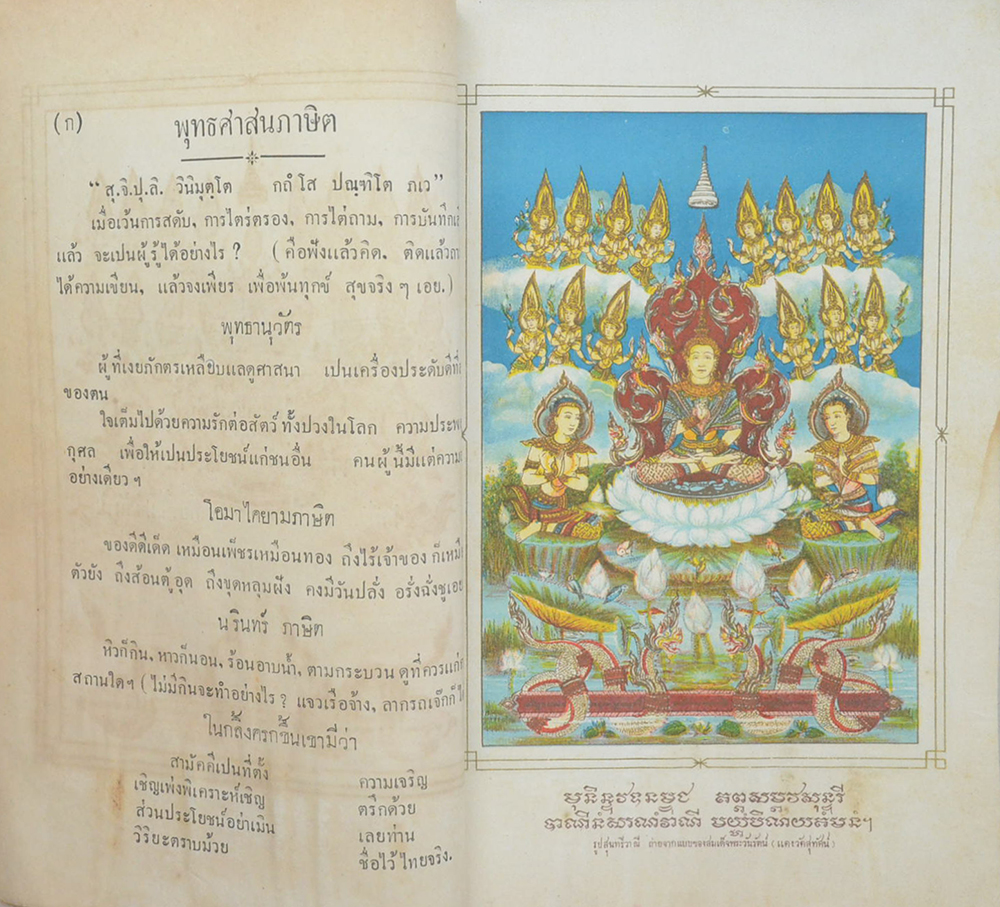 (ก)
พุทธศาสนภาษิต
“ สุ.จิ.ปุ.ลิ. วินิมุตฺโต กถํ โส ปณฺฑิโต ภเว”
เมื่อเว้นการสดับ, การไตร่ตรอง, การไต่ถาม, การบันทึก
แล้ว จะเปนผู้รู้ได้อย่างไร ? ( คือฟังแล้วคิด. ติดแล้วถาม
ได้ความเขียน, แล้วจงเพียร เพื่อพ้นทุกข์ สุขจริง ๆ เอย.)
พุทธานุวัตร
ผู้ที่เงยภักตรเหลียบแลดูศาสนา เปนเครื่องประดับดีที่
ของตน
ใจเต็มไปด้วยความรักต่อสัตว์ ทั้งปวงในโลก ความประพ
กุศล เพื่อให้เปนประโยชน์แก่ชนอื่น คนผู้นี้มีแต่ความ
อย่างเดียว ฯ
โอมาไคยามภาษิต
ของดีดีเด็ด เหมือนเพ็ชรเหมือนทอง ถึงไร้เจ้าของ ก็เหมื
ตัวยัง ถึงส้อนตู้อุด ถึงขุดหลุมฝัง คงมีวันปลั่ง อรั่งฉั่งชูเอย
นรินทร์ ภาษิต
หิวก็กิน, หาวก็นอน, ร้อนอาบน้ำ, ตามกระบวน ดูที่ควรแก่
สถานใดฯ ( ไม่มีกินจะทำอย่างไร ? แจวเรือจ้าง, ลากรถเจ๊กก็
ในกลึงครกชื้นเขามีว่า
สามัคคีเปนที่ตั้ง ความเจริญ
เชิญเพ่งพิเคราะห์เชิญ ตรึกด้วย
ส่วนประโยชน์อย่าเมิน เลยท่าน
วิริยะตราบม้วย ชื่อไว้ไทยจริง.
รูปสุนทรีวาณี ถ่ายจากแบบของสมเด็จพระวันรัตน์ ( แดง วัดสุทัศน์ )